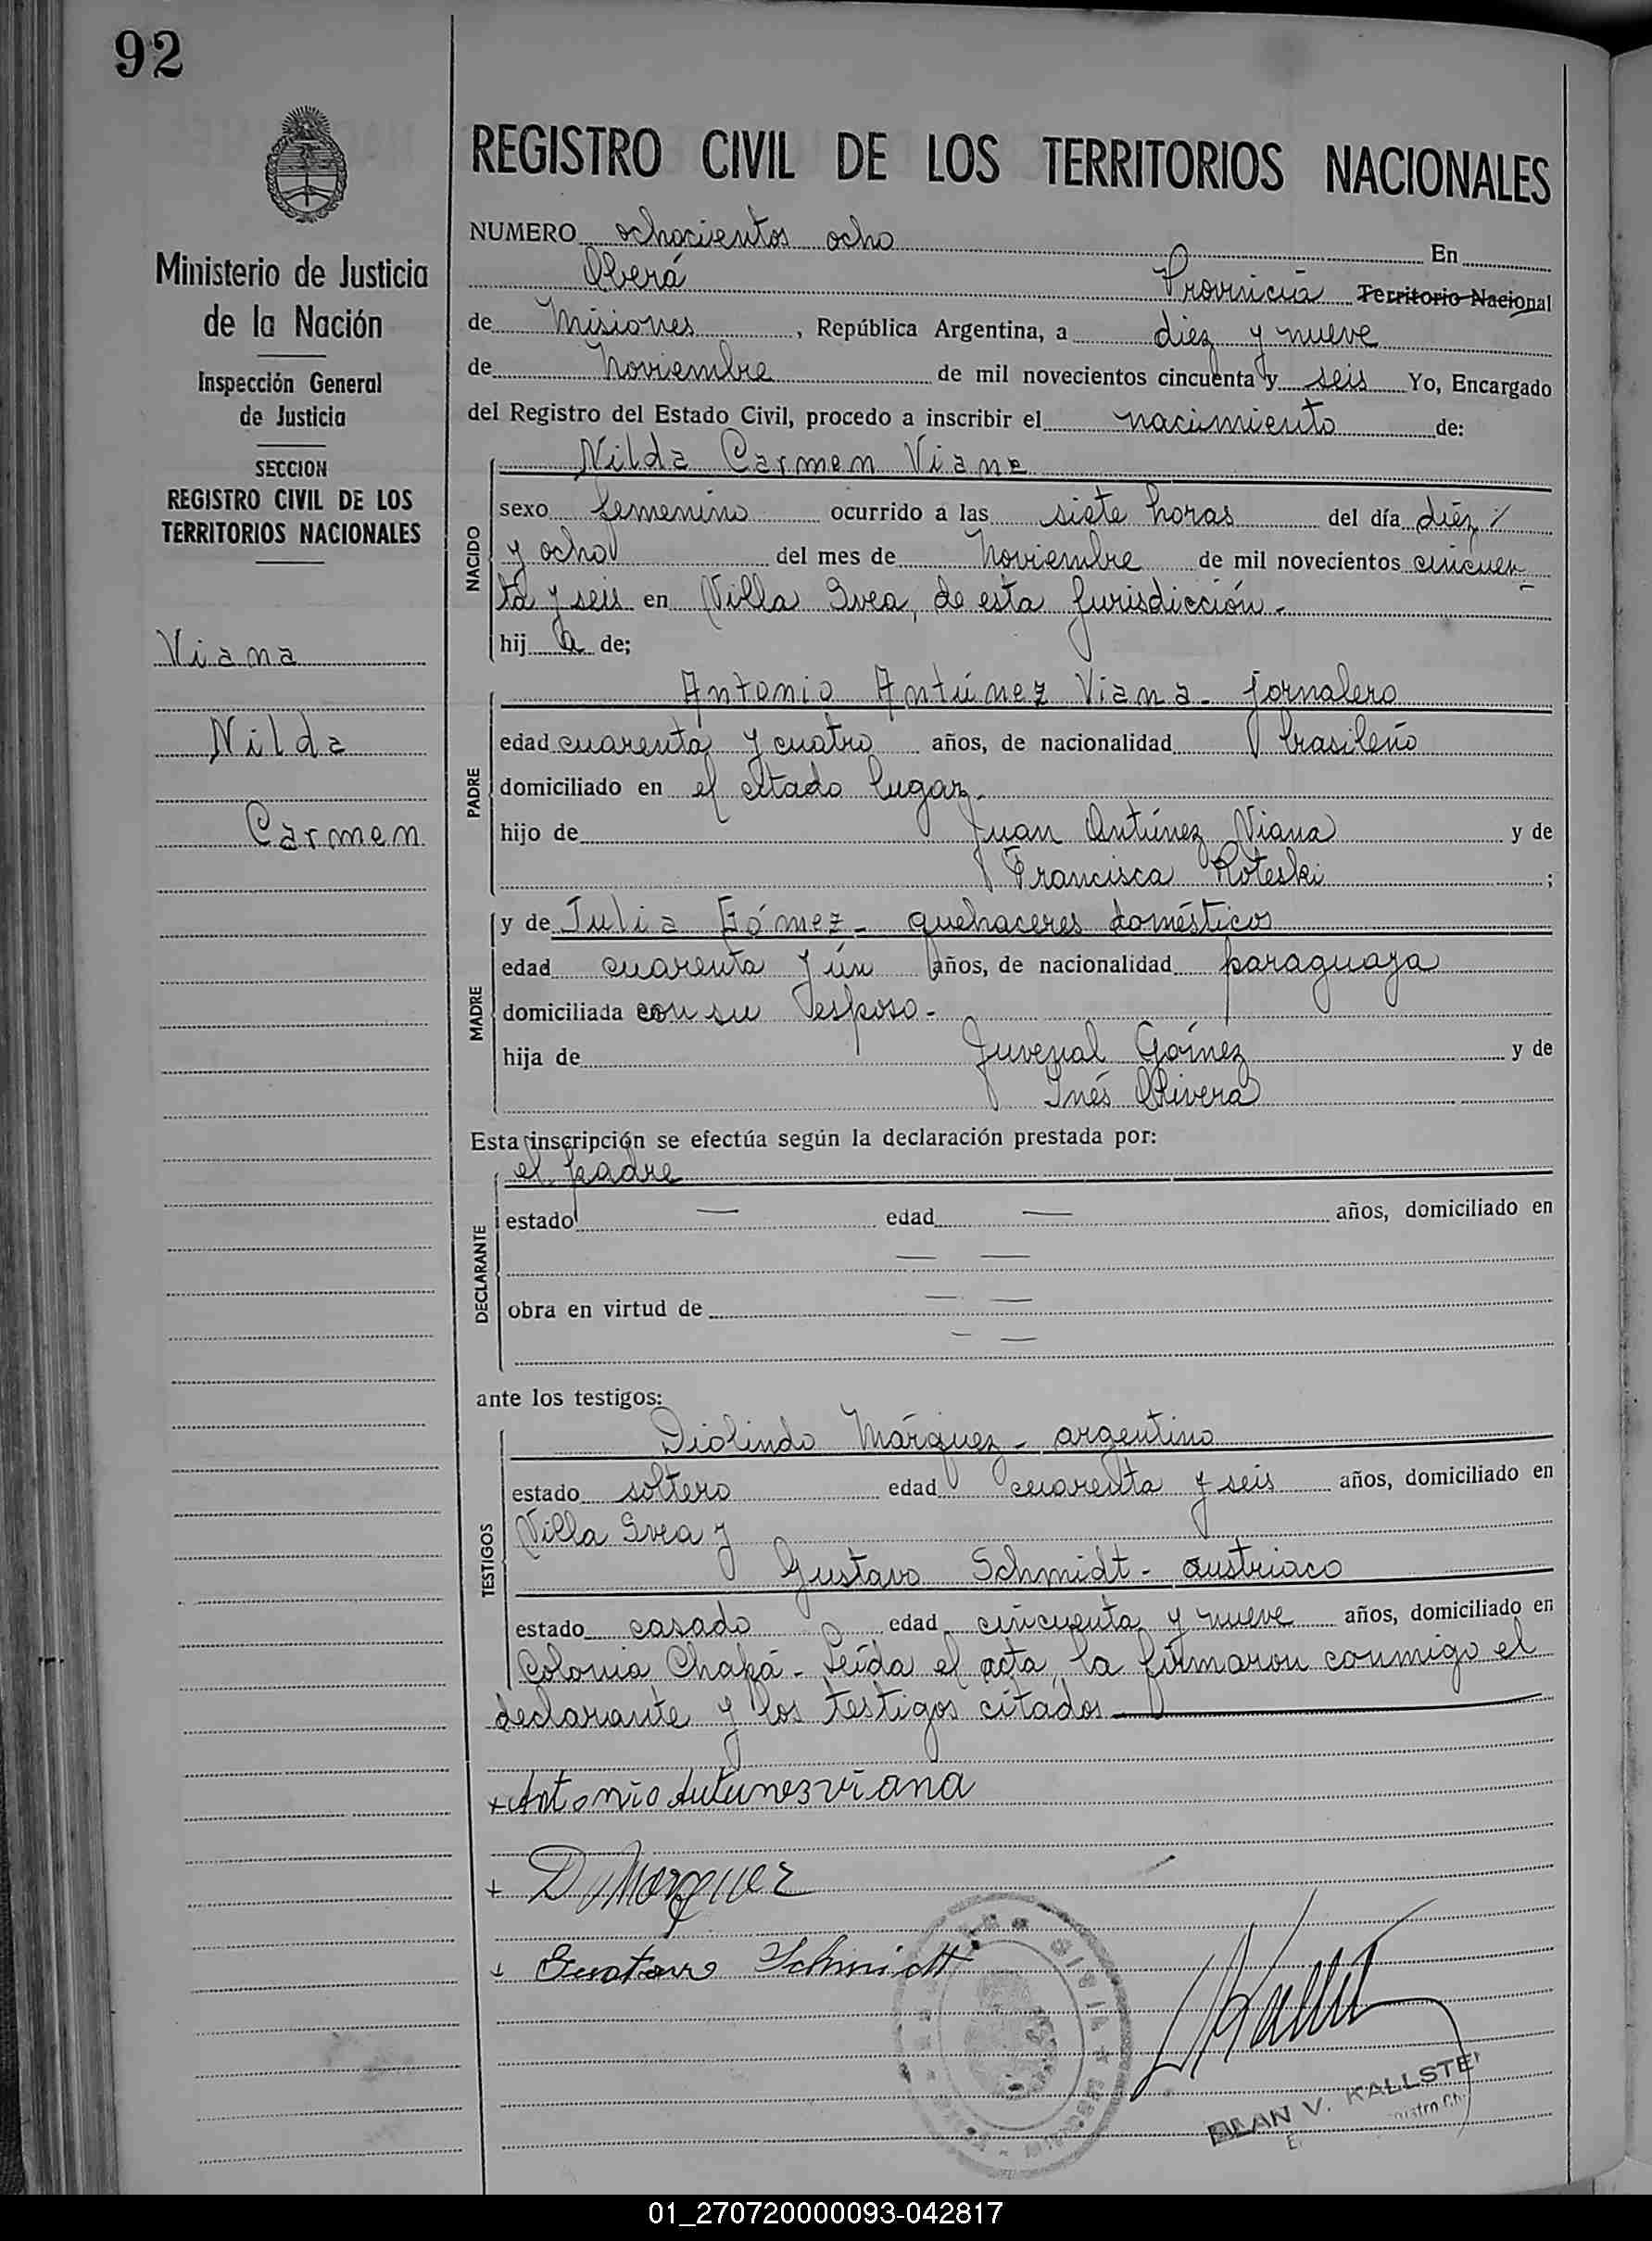 92
REGISTRO CIVIL DE LOS TERRITORIOS NACIONALES
Ministerio de Justicia
de la Nación
Inspección General
de Justicia
SECCION
REGISTRO CIVIL DE LOS
TERRITORIOS NACIONALES
Viana
Nilda
Carmen
NUMERO ochocientos ocho En
Oberá Provincia Territorio Nacional
de Misiones, República Argentina, a diez y nueve
de Noviembre de mil novecientos cincuenta y seis Yo, Encargado
del Registro del Estado Civil, procedo a inscribir el nacimiento de:
NACIDO
Nilda Carmen Viana
sexo femenino ocurrido a las siete horas del día diez
y ocho del mes de Noviembre de mil novecientos cincuen
ta y seis en Villa Svea, de esta jurisdicción.-
hija de;
PADRE
Antonio Antúnez Viana - jornalero
edad cuarenta y cuatro años, de nacionalidad brasileño
domiciliado en el citado lugar.-
hijo de Juan Antúnez Viana y de
Francisca Roteski;
MADRE
y de Julia Gómez - quehaceres domésticos
edad cuarenta y ún años, de nacionalidad paraguaya
domiciliada con su esposo.-
hija de Juvenal Gómez y de
Inés Rivera
Esta inscripción se efectúa según la declaración prestada por:
DECLARANTE
el padre
estado — edad — años, domiciliado en
— —
obra en virtud de — —
— —
ante los testigos:
TESTIGOS
Diolindo Márquez - argentino
estado soltero edad cuarenta y seis años, domiciliado en
Villa Svea y
Gustavo Schmidt - austriaco
estado casado edad cincuenta y nueve años, domiciliado en
Colonia Chapá - Leída el acta, la firmaron conmigo el
declarante y los testigos citados
+ Antonio Antunes viana
+ D Marquez
+ Gustavo Schmidt
V. KALLSTE
01_270720000093-042817